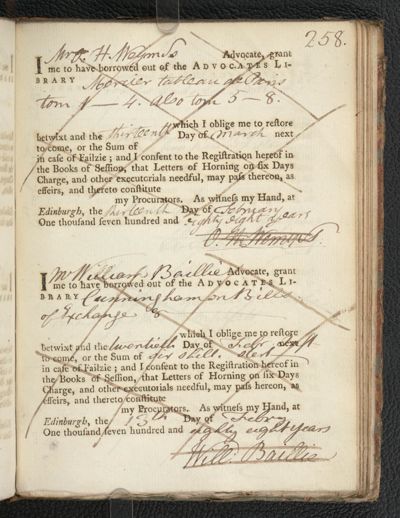 258.
I Mr H. Wemyss Advocate, grant
me to have borrowed out of the ADVOCATES LI-
BRARY Mercier tableau de Paris
tom 1 — 4. also tom 5 — 8.
which I oblige me to restore
betwixt and the thirteenth Day of March next
to come, or the Sum of
in case of Failzie ; and I consent to the Registration hereof in
the Books of Session, that Letters of Horning on six Days
Charge, and other executorials needful, may pass hereon, as
effeirs, and thereto constitute
my Procurators. As witness my Hand, at
Edinburgh, the thirteenth Day of February
One thousand seven hundred and eighty eight years
H. Wemyss.
I Mr William Baillie Advocate, grant
me to have borrowed out of the ADVOCATES LI-
BRARY Cunningham on Bills
of Exchange 8
which I oblige me to restore
betwixt and the twentieth Day of Febr next
to come, or the Sum of six shill. ster
in case of Failzie ; and I consent to the Registration hereof in
the Books of Session, that Letters of Horning on six Days
Charge, and other executorials needful, may pass hereon, as
effeirs, and thereto constitute
my Procurators. As witness my Hand, at
Edinburgh, the 13th Day of Febry
One thousand seven hundred and eighty eight years
Will: Baillie